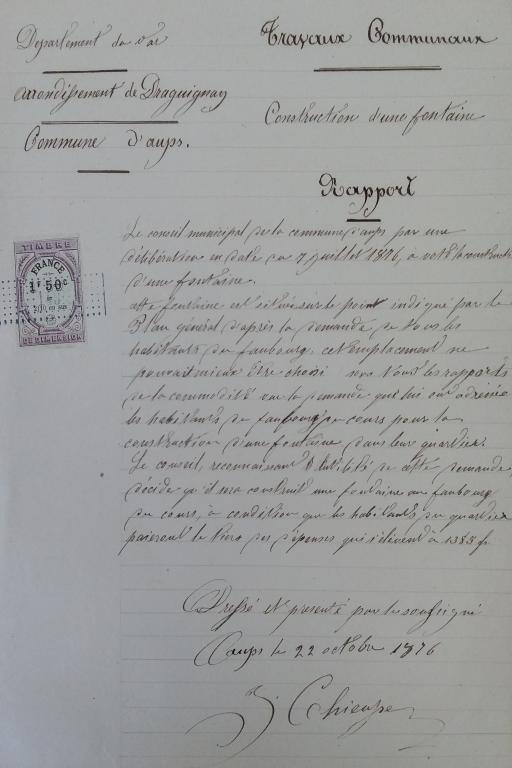 Departement du var
arrondissement de Draguignan
Commune d'aups.
Travaux Communaux
Construction d'une fontaine
Rapport
TIMBRE
FRANCE
1F50c
DE DIMENSION
Le conseil municipal de la commune d'aups par une
délibération en date du 7 juillet 1876, à voté la construction
d'une fontaine.
cette fontaine est située sur le point indiqué par le
Plan général d'après la demande de tous les
habitants du faubourg, cet emplacement ne
pouvait mieux être choisi sous tous les rapports
de la commodité vu la demande qui lui ont adressée
les habitants du faubourg du cours pour la
construction d'une fontaine dans leur quartier.
Le conseil, reconnaissant l'utilité de cette demande,
décide qu'il sera construit une fontaine au faubourg
du cours, à condition que les habitants du quartier
paieront le tiers des dépenses qui s'élèvent à 1388 f
Dressé et présenté par le soussigné
aups le 22 octobre 1876